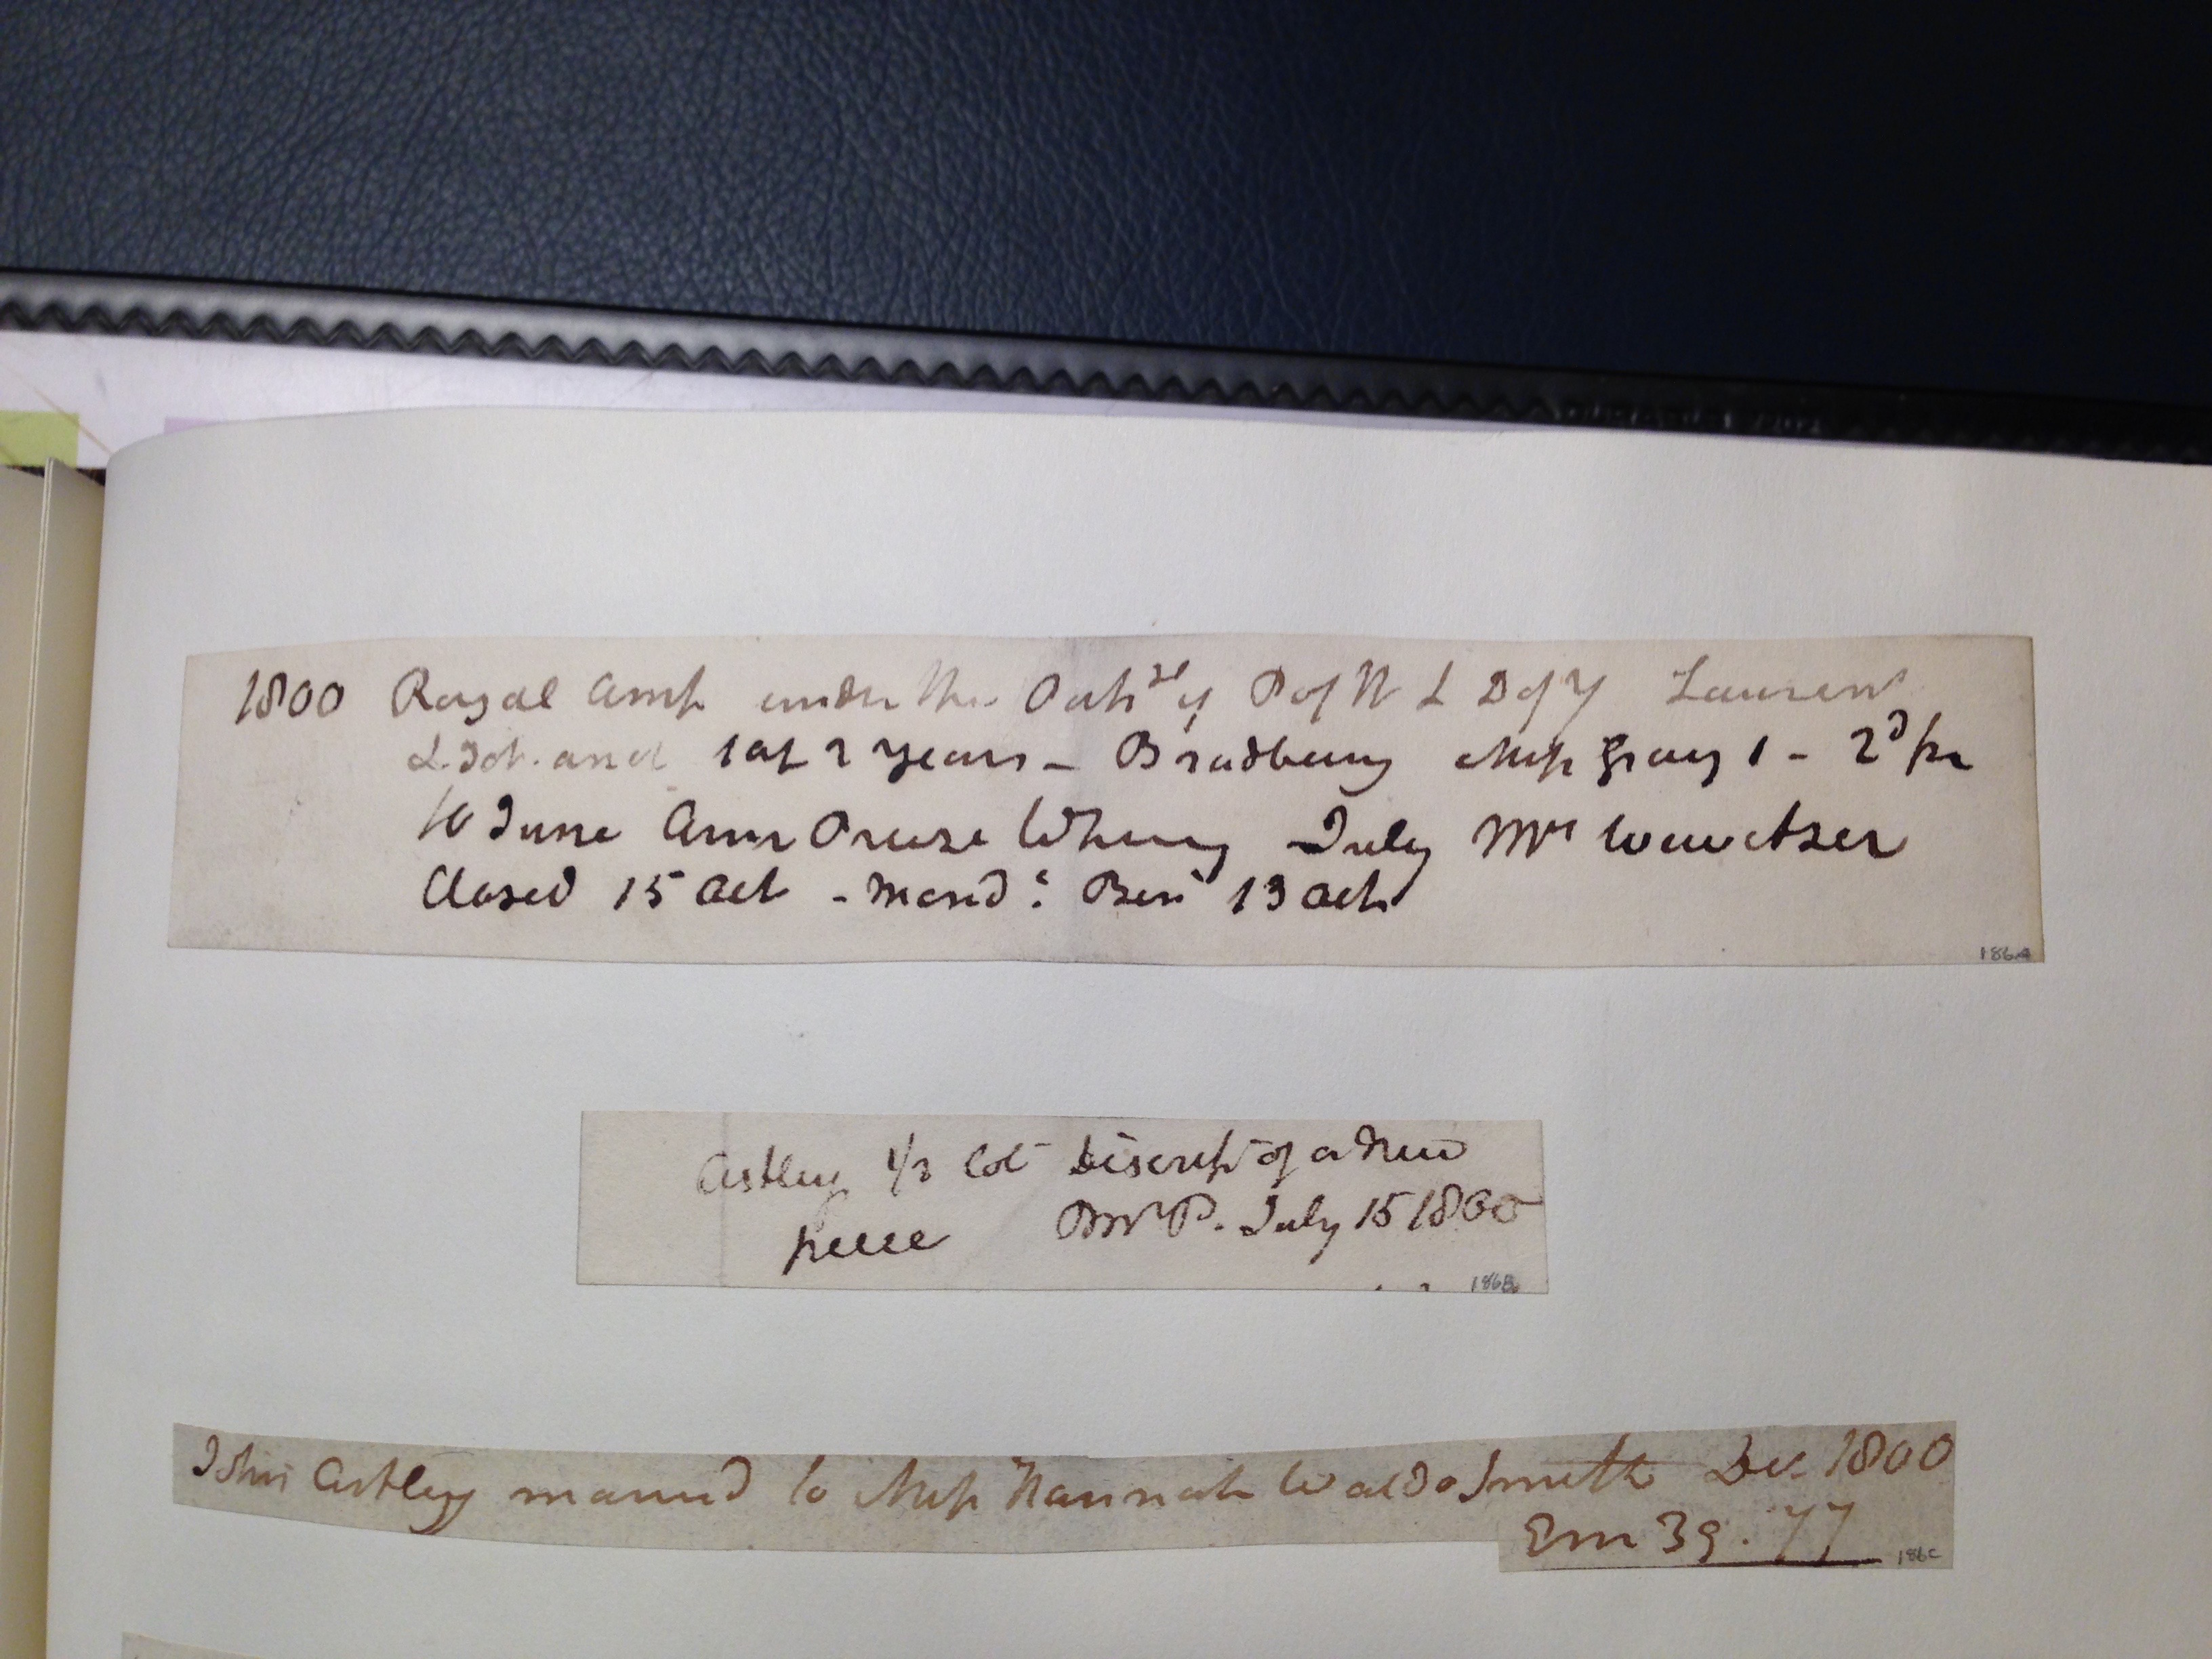 1800 Royal Amp under the Patr ge of P of W & D of Y Laurent
& Ist. and 1 at 2 years - Bradbury Miss Gray 1 - 2d pr
10 June Ann Whimsy July Mrs Wewitzer
Closed 15 Oct - Mond: Ben 13 Oct
186A
Astley 1/2 Col Descript of a New
piece July 15 1800
186B
John Astley married to Miss Hannah Waldo Smith Dec 1800
Em 39. 77
186C